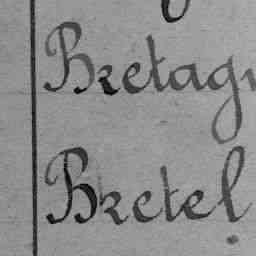 Bretagn
Bretel